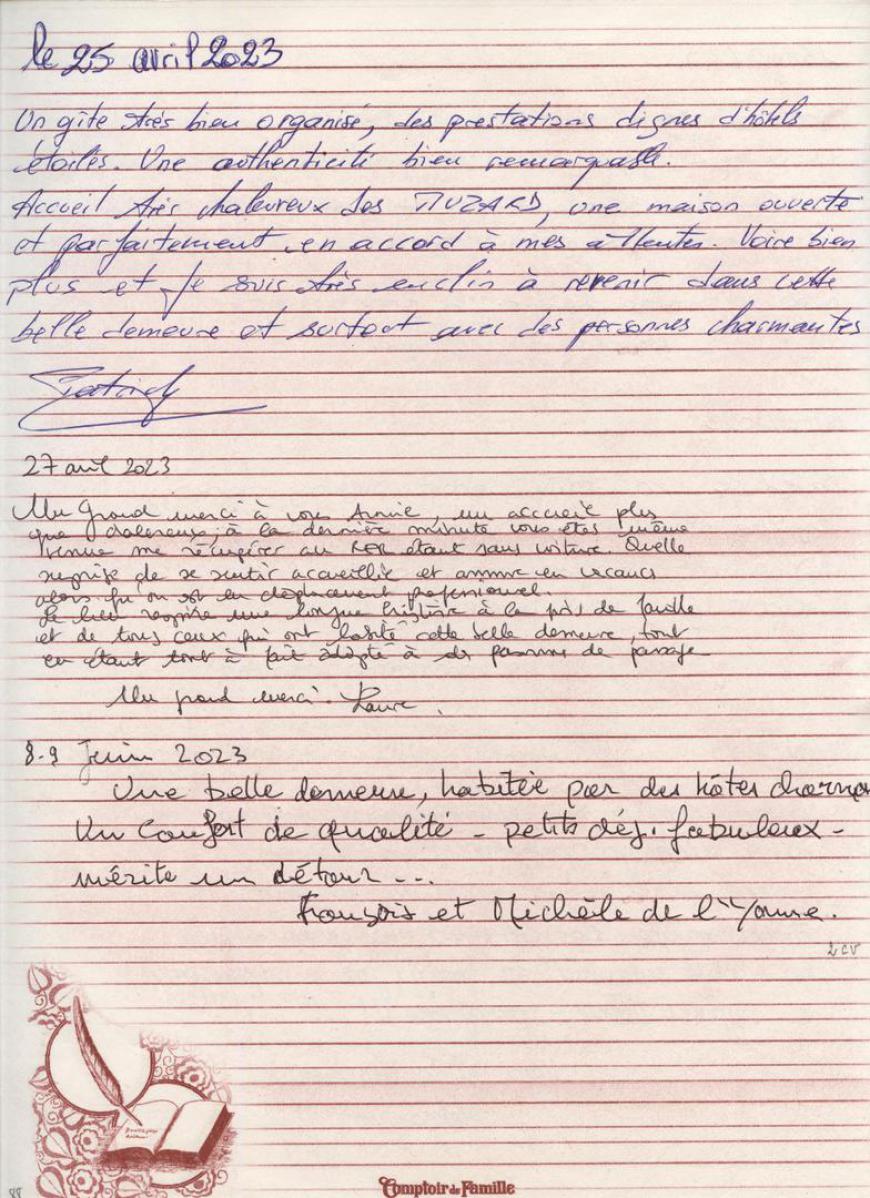 le 25 avril 2023
Un gîte très bien organisé, des prestations dignes d'hôtels
étoilés. Une authenticité bien remarquable.
Accueil très chaleureux des MUZARD, une maison ouverte
et parfaitement en accord à mes attentes. Voire bien
plus et je suis très enclin à revenir dans cette
belle demeure et surtout avec des personnes charmantes
27 avril 2023
Un Grand merci à vous Annie, un accueil plus
que chaleureux, à la dernière minute vous êtes même
venue me récupérer au RER étant sans voiture. Quelle
surprise de se sentir accueillie et comme en vacances
alors qu'on est en déplacement professionnel.
Le lieu respire une longue histoire à la fois de famille
et de tous ceux qui ont habité cette belle demeure, tout
en étant tout à fait adapté à des personnes de passage
Un grand merci. Laure.
8-9 Juin 2023
Une belle demeure, habitée par des hôtes charma
Un confort de qualité - petits déj. fabuleux -
mérite un détour...
François et Michèle de l'Yonne.
2 CV
Comptoir de Famille
88